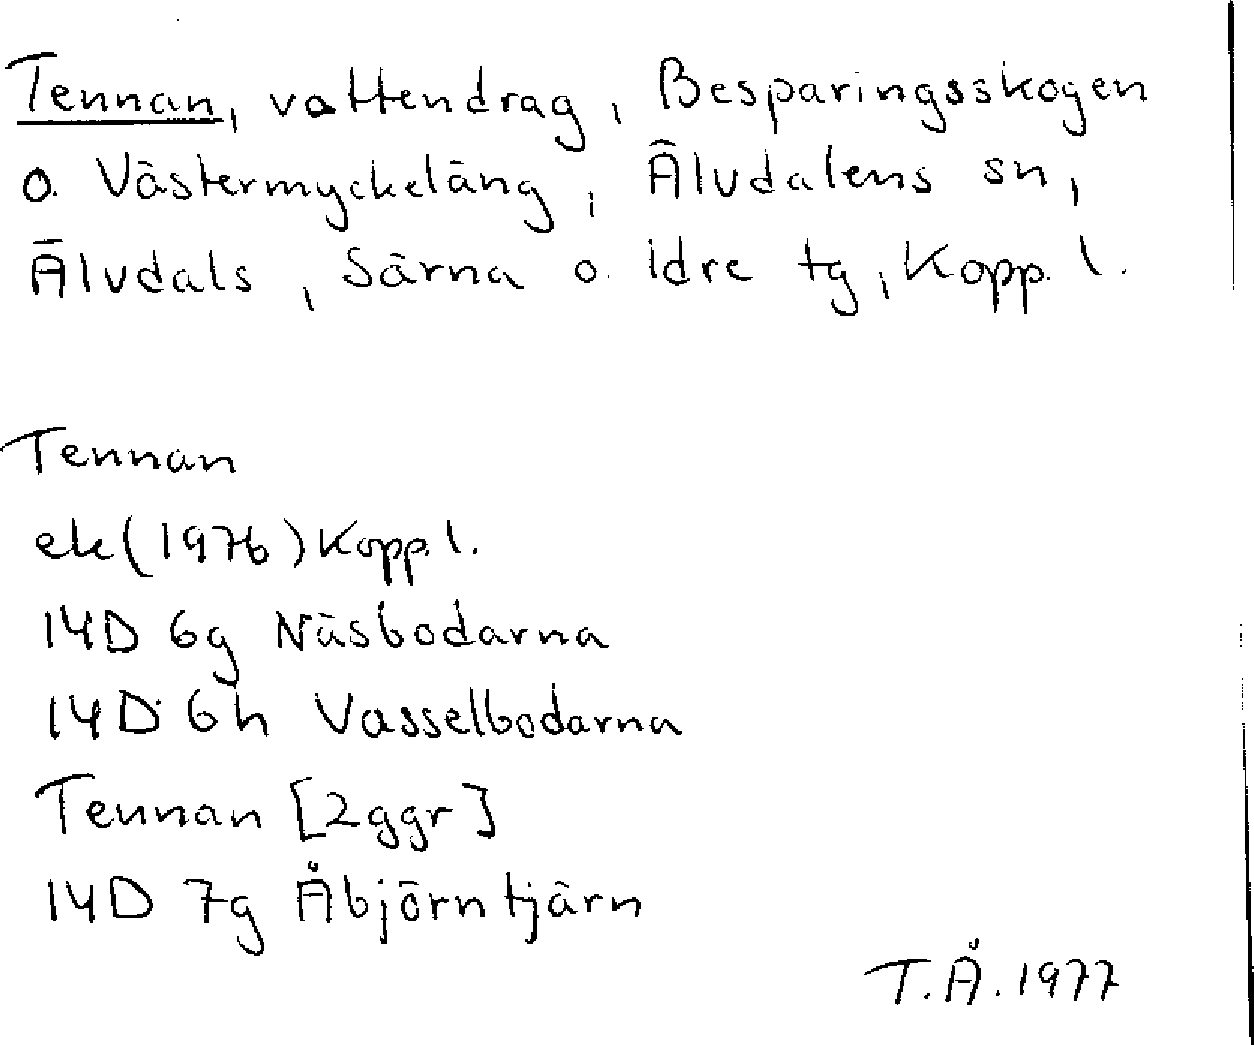 Tennan, vattendrag, Besparingsskogen
o. Västermyckeläng, Älvdalens sn,
Älvdals, Särna o. Idre tg, Kopp. l.
Tennan
ek (1976) Kopp. l.
14D 6g Näsbodarna
14D 6h Vasselbodarna
Tennan [2ggr]
14D 7g Åbjörntjärn
T.Å. 1977